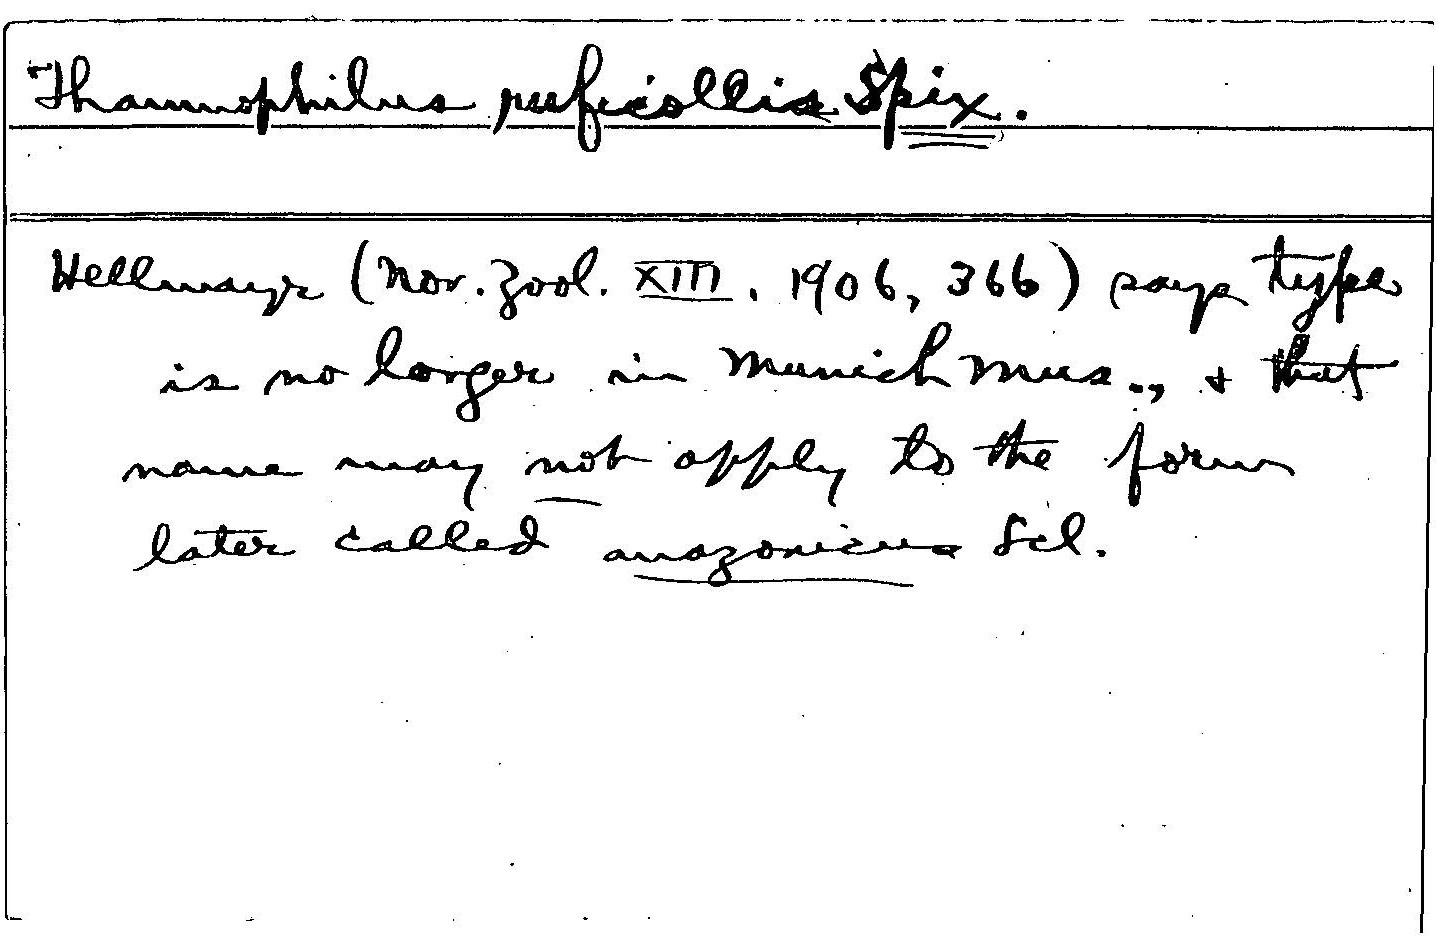 Thamnophilus ruficollis Spix.
Hellmayr (Nov. Zool. XIII. 1906, 366) says type
is no longer in Munich Mus., & that
name may not apply to the form
later called amazonicus Scl.